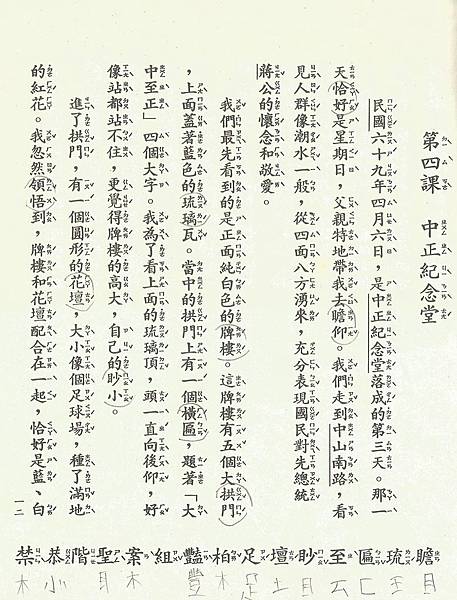 第四課　中正紀念堂
民國六十九年四月六日，是中正紀念堂落成的第三天。那一
天恰好是星期日，父親特地帶我去瞻仰。我們走到中山南路，看
見人群像潮水一般，從四面八方湧來，充分表現國民對先總統
蔣公的懷念和敬愛。
我們最先看到的是正面純白色的牌樓。這牌樓有五個大拱門
，上面蓋著藍色的琉璃瓦。當中的拱門上有一個橫匾，題著「大
中至正」四個大字。我為了看上面的琉璃頂，頭一直向後仰，好
像站都站不住，更覺得牌樓的高大，自己的眇小。
進了拱門，有一個圓形的花壇，大小像個足球場，種了滿地
的紅花。我忽然領悟到，牌樓和花壇配合在一起，恰好是藍、白
一二
瞻琉匾至眇壇足柏豔組案聖階恭禁